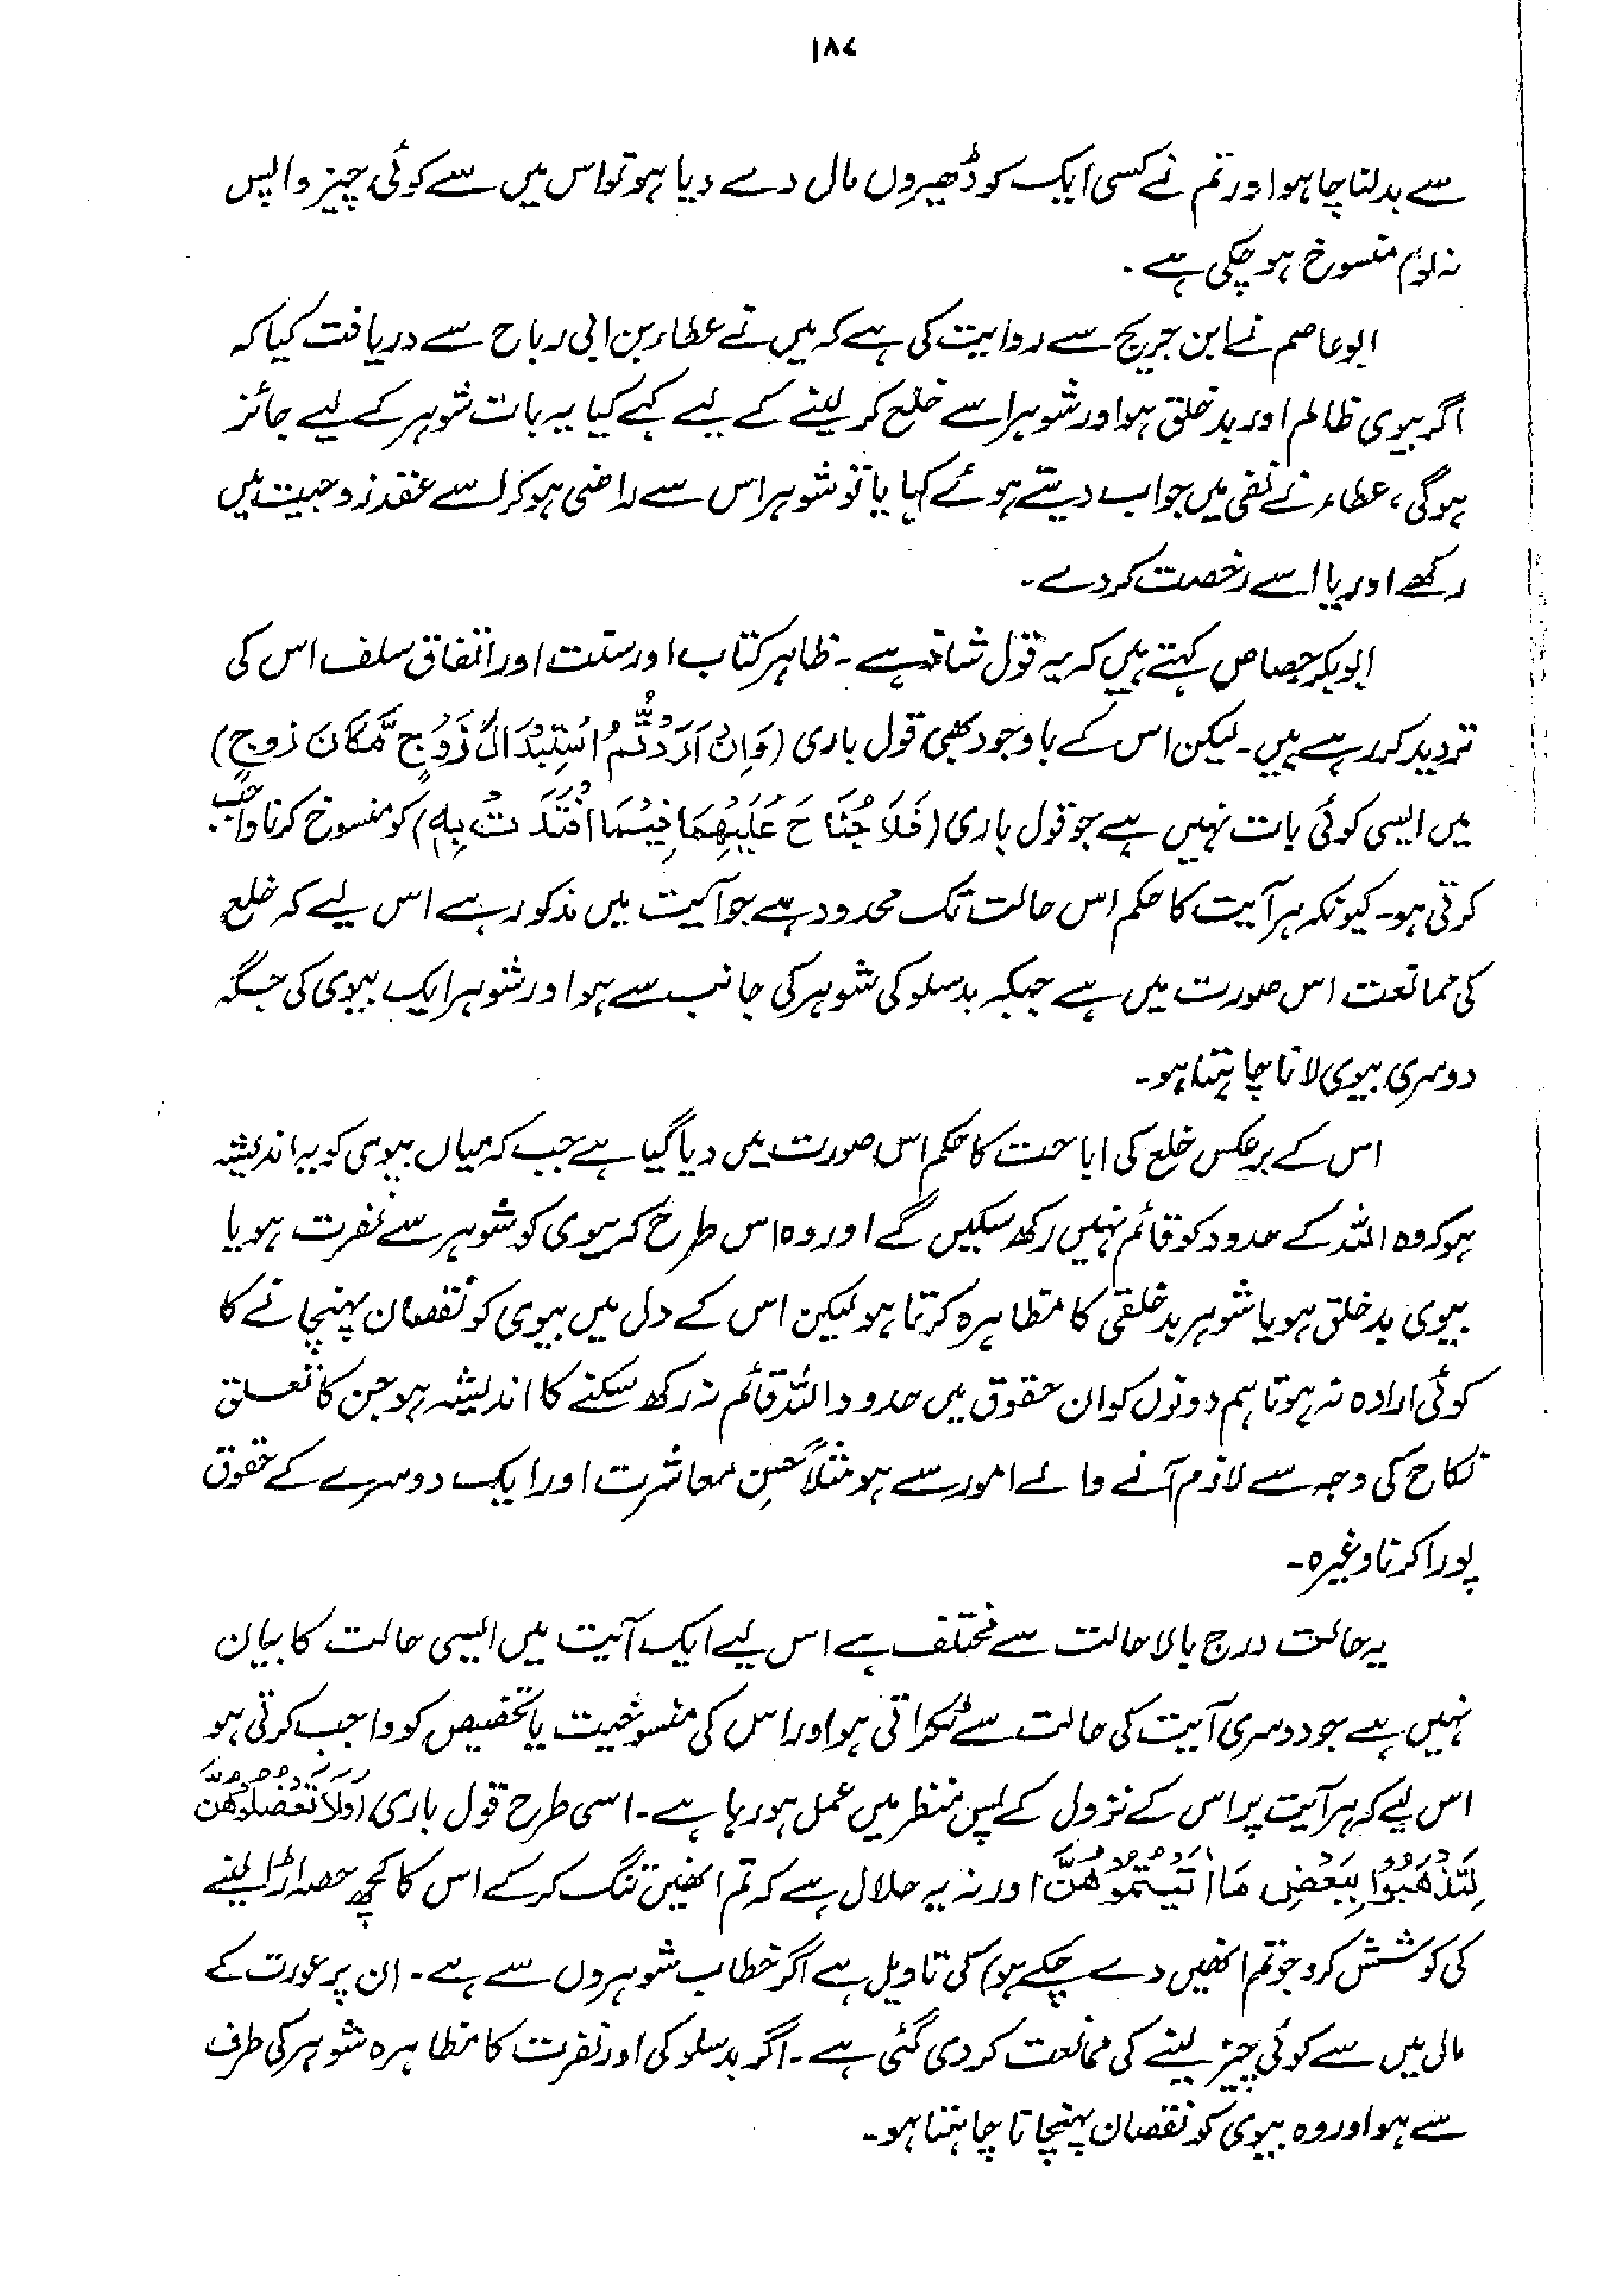 ۱۸۷
سے بدلنا چاہو اور تم نے کسی ایک کو ڈھیروں مال دے دیا ہو تو اس میں سے کوئی چیز واپس
نہ لو) منسوخ ہو چکی ہے۔
ابو عاصم نے ابن جریج سے روایت کی ہے کہ میں نے عطاء بن ابی رباح سے دریافت کیا کہ
اگر بیوی ظالم اور بدخلق ہو اور شوہر اسے خلع کر لینے کے لیے کہے کیا یہ بات شوہر کے لیے جائز
ہوگی، عطاء نے نفی میں جواب دیتے ہوئے کہا یا تو شوہر اس سے راضی ہو کر اسے عقد زوجیت میں
رکھے اور یا اسے رخصت کر دے۔
ابوبکر جصاص کہتے ہیں کہ یہ قول شاذ ہے۔ ظاہر کتاب اور سنت اور اتفاق سلف اس کی
تردید کر رہے ہیں۔ لیکن اس کے باوجود بھی قول باری (وَاِنْ اَرَدْتُّمُ اسْتِبْدَالَ زَوْجٍ مَّكَانَ زَوْجٍ)
میں ایسی کوئی بات نہیں ہے جو قول باری (فَلَا جُنَاحَ عَلَيْهِمَا فِيْمَا افْتَدَتْ بِهٖ) کو منسوخ کرنا واجب
کرتی ہو۔ کیونکہ ہر آیت کا حکم اس حالت تک محدود ہے جو آیت میں مذکور ہے اس لیے کہ خلع
کی ممانعت اس صورت میں ہے جبکہ بدسلوکی شوہر کی جانب سے ہو اور شوہر ایک بیوی کی جگہ
دوسری بیوی لانا چاہتا ہو۔
اس کے برعکس خلع کی اباحت کا حکم اس صورت میں دیا گیا ہے جب کہ میاں بیوی کو یہ اندیشہ
ہو کہ وہ اللہ کے حدود کو قائم نہیں رکھ سکیں گے اور وہ اس طرح کہ بیوی کو شوہر سے نفرت ہو یا
بیوی بدخلق ہو یا شوہر بدخلقی کا مظاہرہ کرتا ہو لیکن اس کے دل میں بیوی کو نقصان پہنچانے کا
کوئی ارادہ نہ ہو تاہم دونوں کو ان حقوق میں حدود اللہ قائم نہ رکھ سکنے کا اندیشہ ہو جن کا تعلق
نکاح کی وجہ سے لازم آنے والے امور سے ہو مثلاً حسنِ معاشرت اور ایک دوسرے کے حقوق
پورا کرنا وغیرہ۔
یہ حالت درج بالا حالت سے مختلف ہے اس لیے ایک آیت میں ایسی حالت کا بیان
نہیں ہے جو دوسری آیت کی حالت سے ٹکراتی ہو اور اس کی منسوخیت یا تخصیص کو واجب کرتی ہو
اس لیے کہ ہر آیت پر اس کے نزول کے پس منظر میں عمل ہو رہا ہے۔ اسی طرح قول باری (وَلَا تَعْضُلُوْهُنَّ
لِتَذْهَبُوْا بِبَعْضِ مَا اٰتَيْتُمُوْهُنَّ اور نہ یہ حلال ہے کہ تم انھیں تنگ کر کے اس کا کچھ حصہ اڑا لینے
کی کوشش کرو جو تم انھیں دے چکے ہو) کی تاویل ہے اگر خطاب شوہروں سے ہے۔ ان پر عورت کے
مال میں سے کوئی چیز لینے کی ممانعت کر دی گئی ہے۔ اگر بدسلوکی اور نفرت کا مظاہرہ شوہر کی طرف
سے ہو اور وہ بیوی کو نقصان پہنچانا چاہتا ہو۔